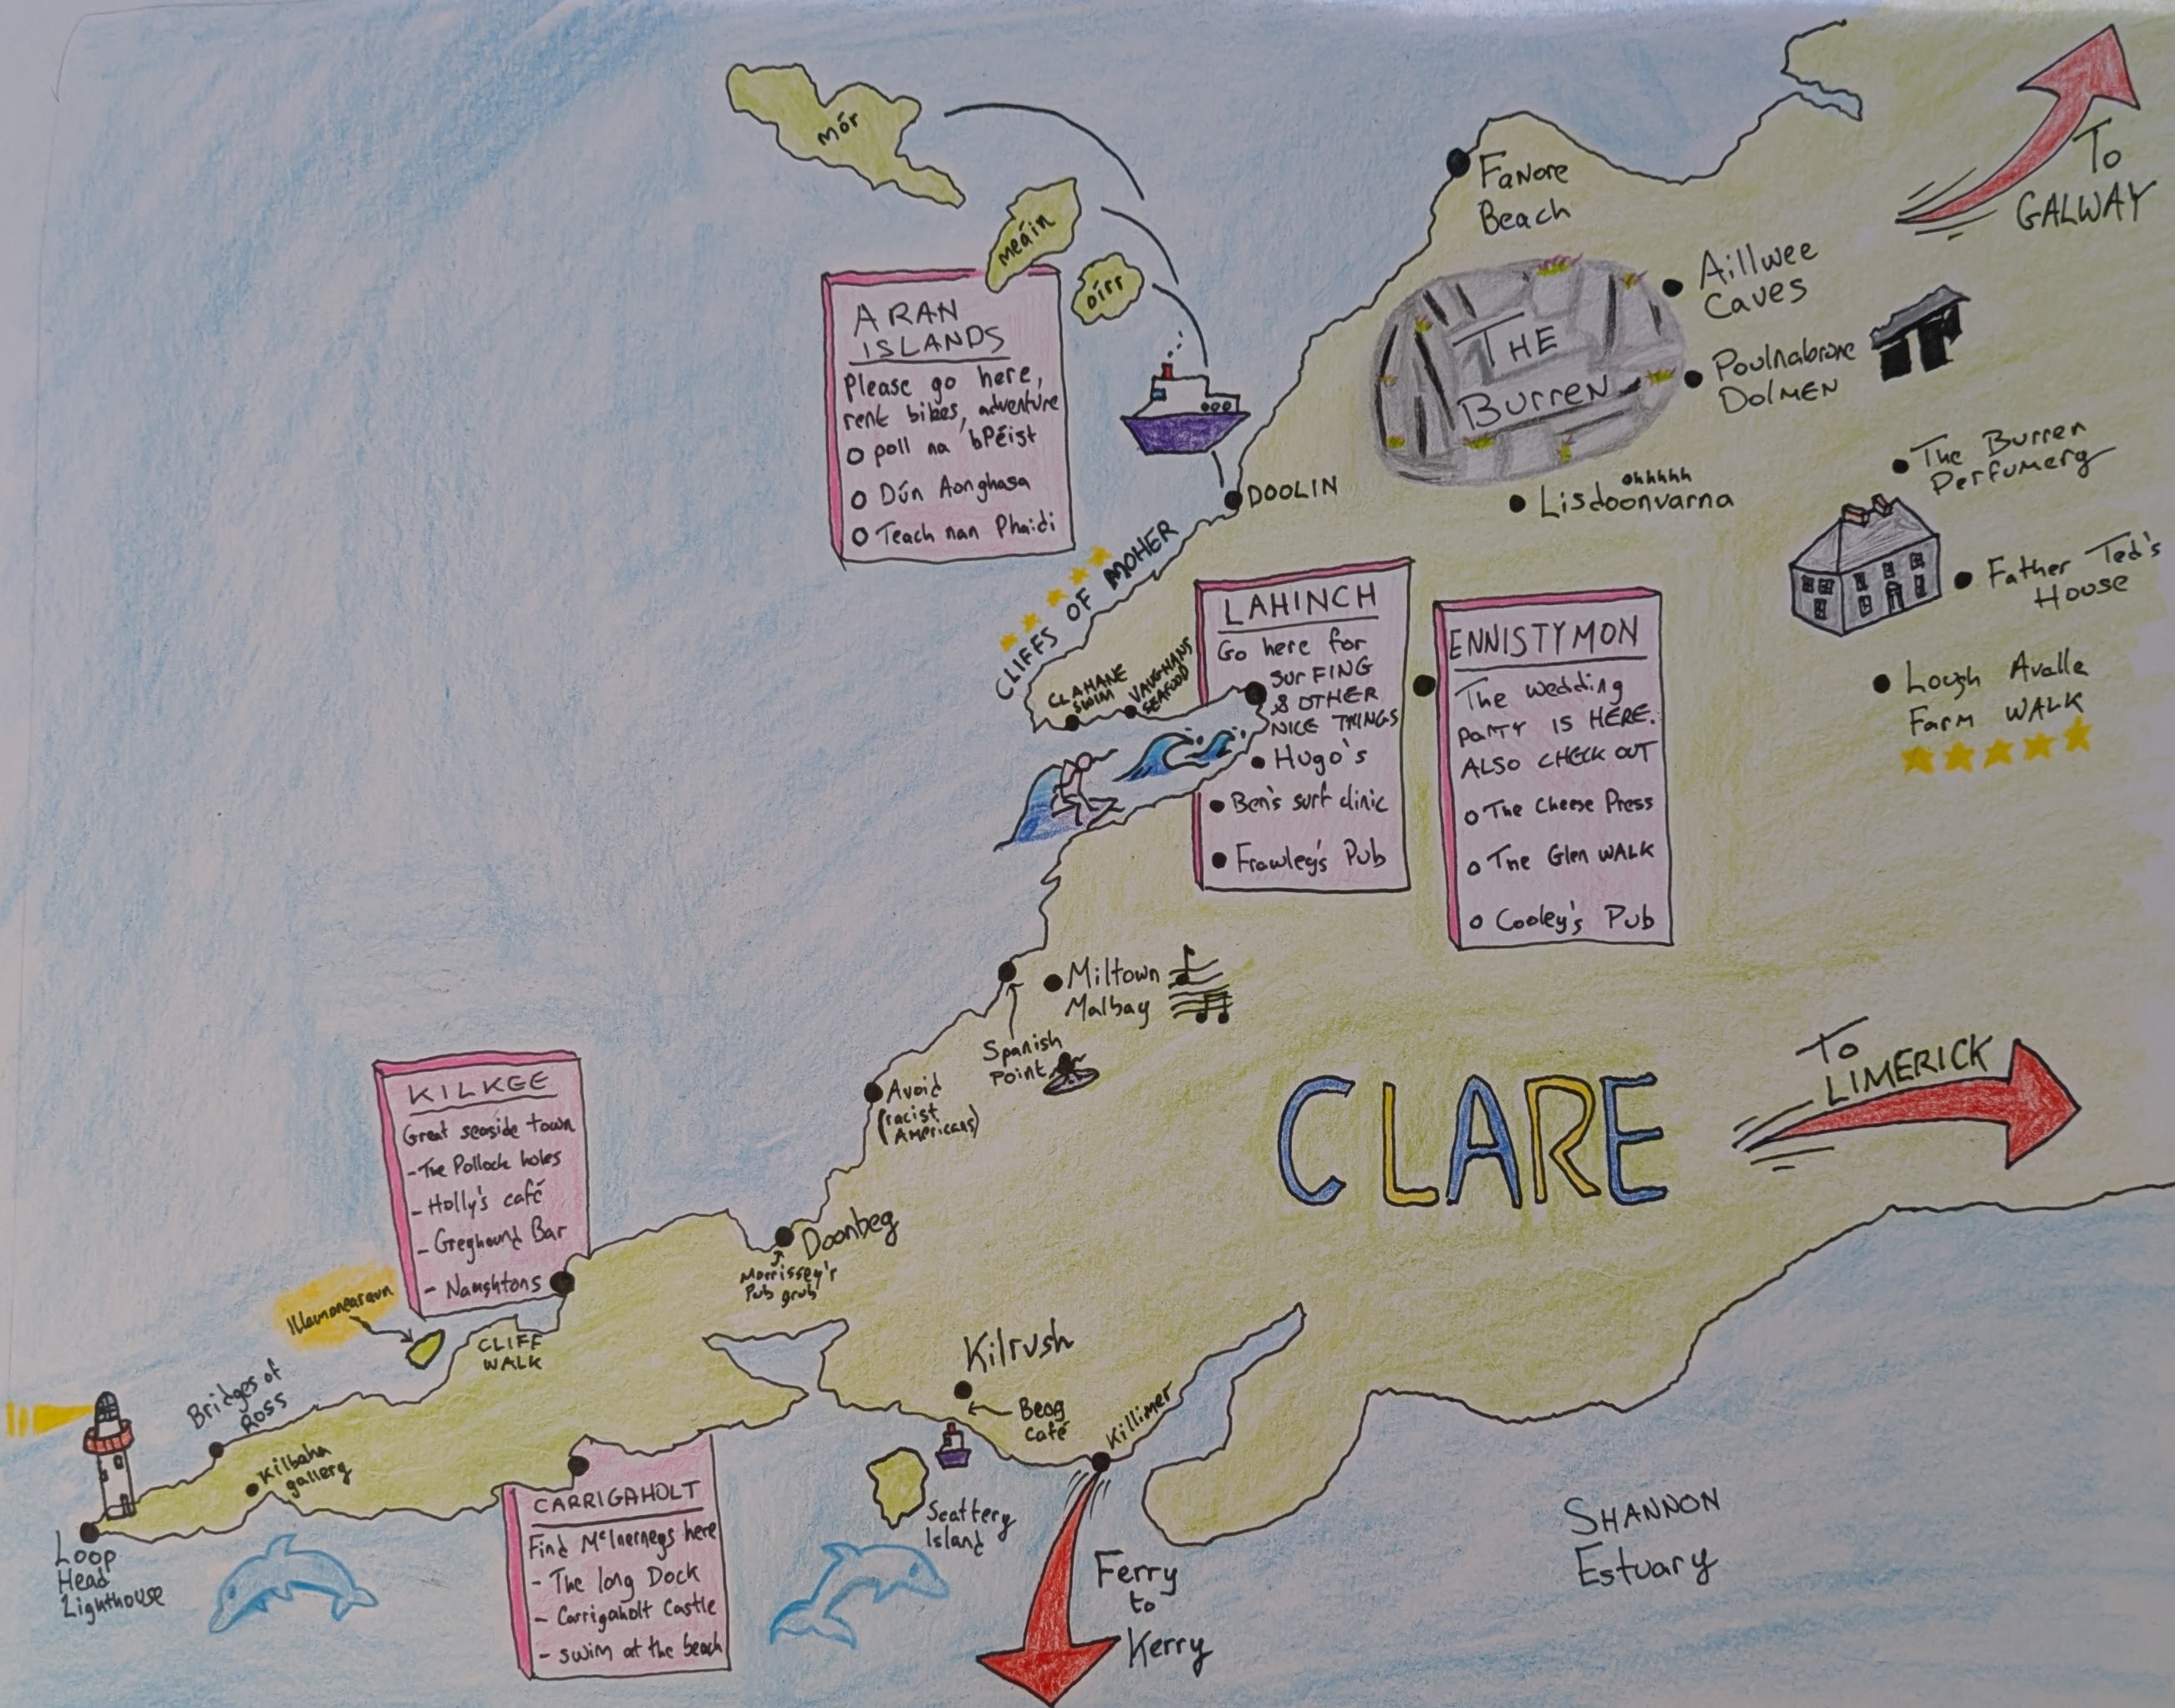 Mór
Meáin
Oírr
ARAN
ISLANDS
Please go here,
rent bikes, adventure
poll na bPéist
Dún Aonghasa
Teach nan Phaidi
Fanore
Beach
To
GALWAY
Aillwee
Caves
THE
Burren
Poulnabrone
Dolmen
The Burren
Perfumery
ohhhhh
Lisdoonvarna
DOOLIN
Father Ted's
House
CLIFFS OF MOHER
Lough Avalla
Farm WALK
CLAHANE
SWIM
VAUGHANS
SEAFOOD
LAHINCH
Go here for
surFING
& OTHER
NICE THINGS
Hugo's
Ben's surf clinic
Frawley's Pub
ENNISTYMON
The wedding
party IS HERE.
ALSO CHECK OUT
The Cheese Press
The Glen WALK
Cooley's Pub
Miltown
Malbay
Spanish
Point
Avoid
(racist
Americans)
CLARE
To
LIMERICK
KILKEE
Great seaside town
- The Pollock holes
- Holly's café
- Greyhound Bar
- Naughtons
Doonbeg
Morrissey's
Pub grub
Illaunonearaun
CLIFF
WALK
Bridges of
Ross
Kilbaha
gallery
Loop
Head
Lighthouse
Kilrush
Beag
café
Killimer
CARRIGAHOLT
Find McInerneys here
- The long Dock
- Carrigaholt Castle
- swim at the beach
Scattery
Island
Ferry
to
Kerry
SHANNON
Estuary